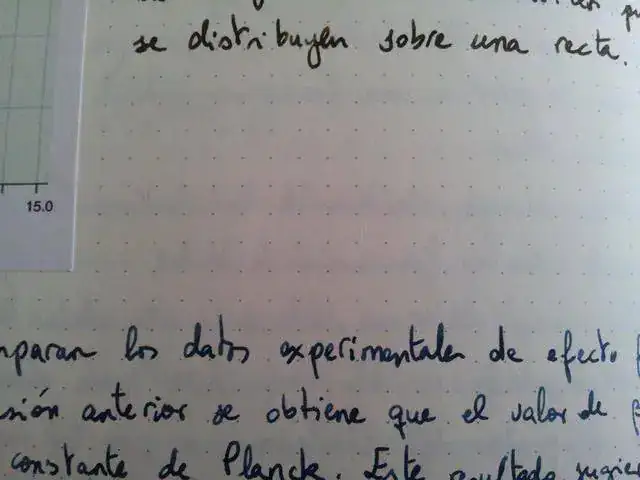 se distribuyen sobre una recta.
15.0
los datos experimentales de efecto
anterior se obtiene que el valor de β
constante de Planck. Este resultado